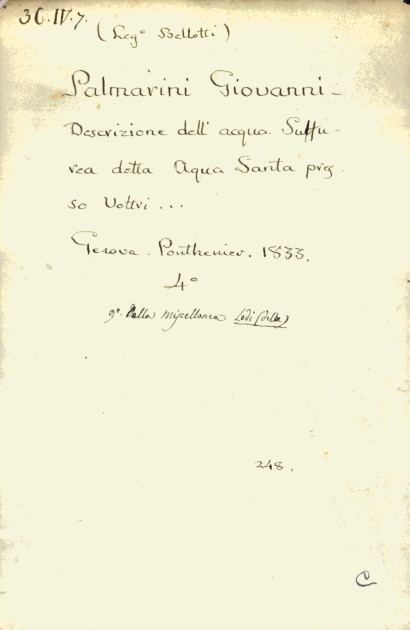 36.IV.7.
(Leg° Bellotti)
Palmarini Giovanni -
Descrizione dell' acqua Sulfu-
rea detta Aqua Santa pres
so Voltri ...
Genova. Ponthenier. 1833.
4°
9°. Della Miscellanea Lodi (delle)
248.
C